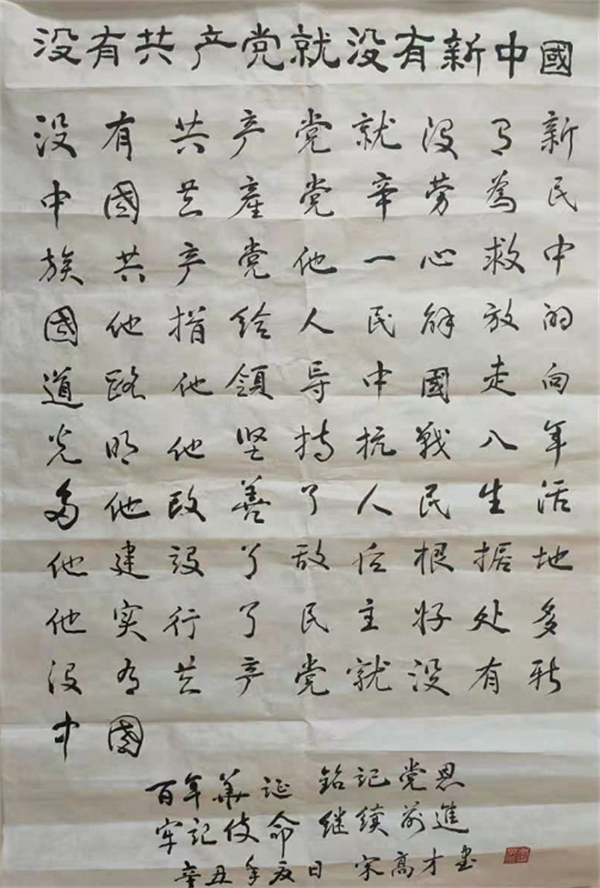 没有共产党就没有新中國
没有共产党就没有新
中國共產党辛劳為民
族共产党他一心救中
國他指给人民解放的
道路他領导中國走向
光明他坚持抗战八年
多他改善了人民生活
他建設了敌后根据地
他实行了民主好处多
没有共产党就没有新
中國
百年華诞 铭记党恩
牢记使命 继续前進
辛丑年夏日 宋高才書